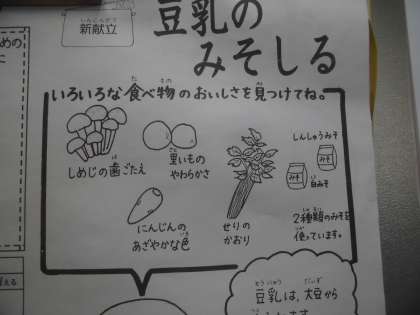 新献立
豆乳の
みそしる
めの
に
いろいろな食べ物のおいしさを見つけてね。
しめじの歯ごたえ
里いもの
やわらかさ
にんじんの
あざやかな色
せりの
かおり
しんしゅうみそ
みそ
みそ
白みそ
2種類のみそを
使っています。
豆乳は、大豆から